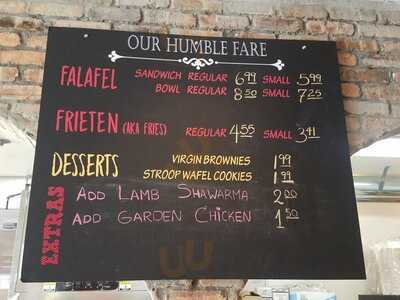 OUR HUMBLE FARE
FALAFEL SANDWICH REGULAR 6.99 SMALL 5.99
BOWL REGULAR 8.50 SMALL 7.25
FRIETEN (AKA FRIES) REGULAR 4.55 SMALL 3.41
DESSERTS VIRGIN BROWNIES 1.99
STROOP WAFEL COOKIES 1.99
EXTRAS
ADD LAMB SHAWARMA 2.00
ADD GARDEN CHICKEN 1.50